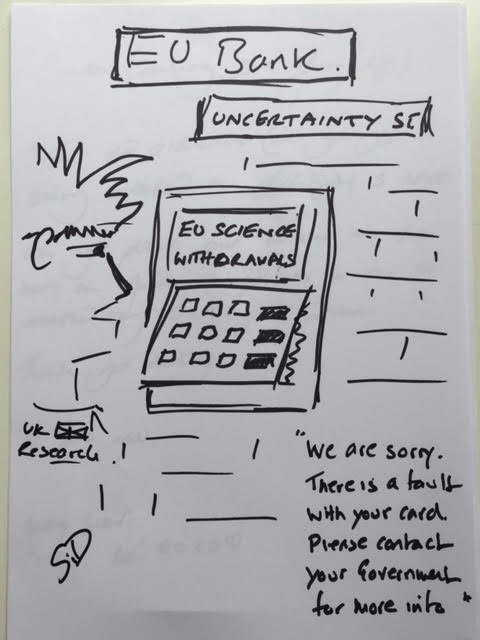 EU Bank.
UNCERTAINTY ST
EU SCIENCE
WITHDRAWALS
UK
Research.
"We are sorry.
There is a fault
with your card.
Please contact
your Government
for more info"
SiD